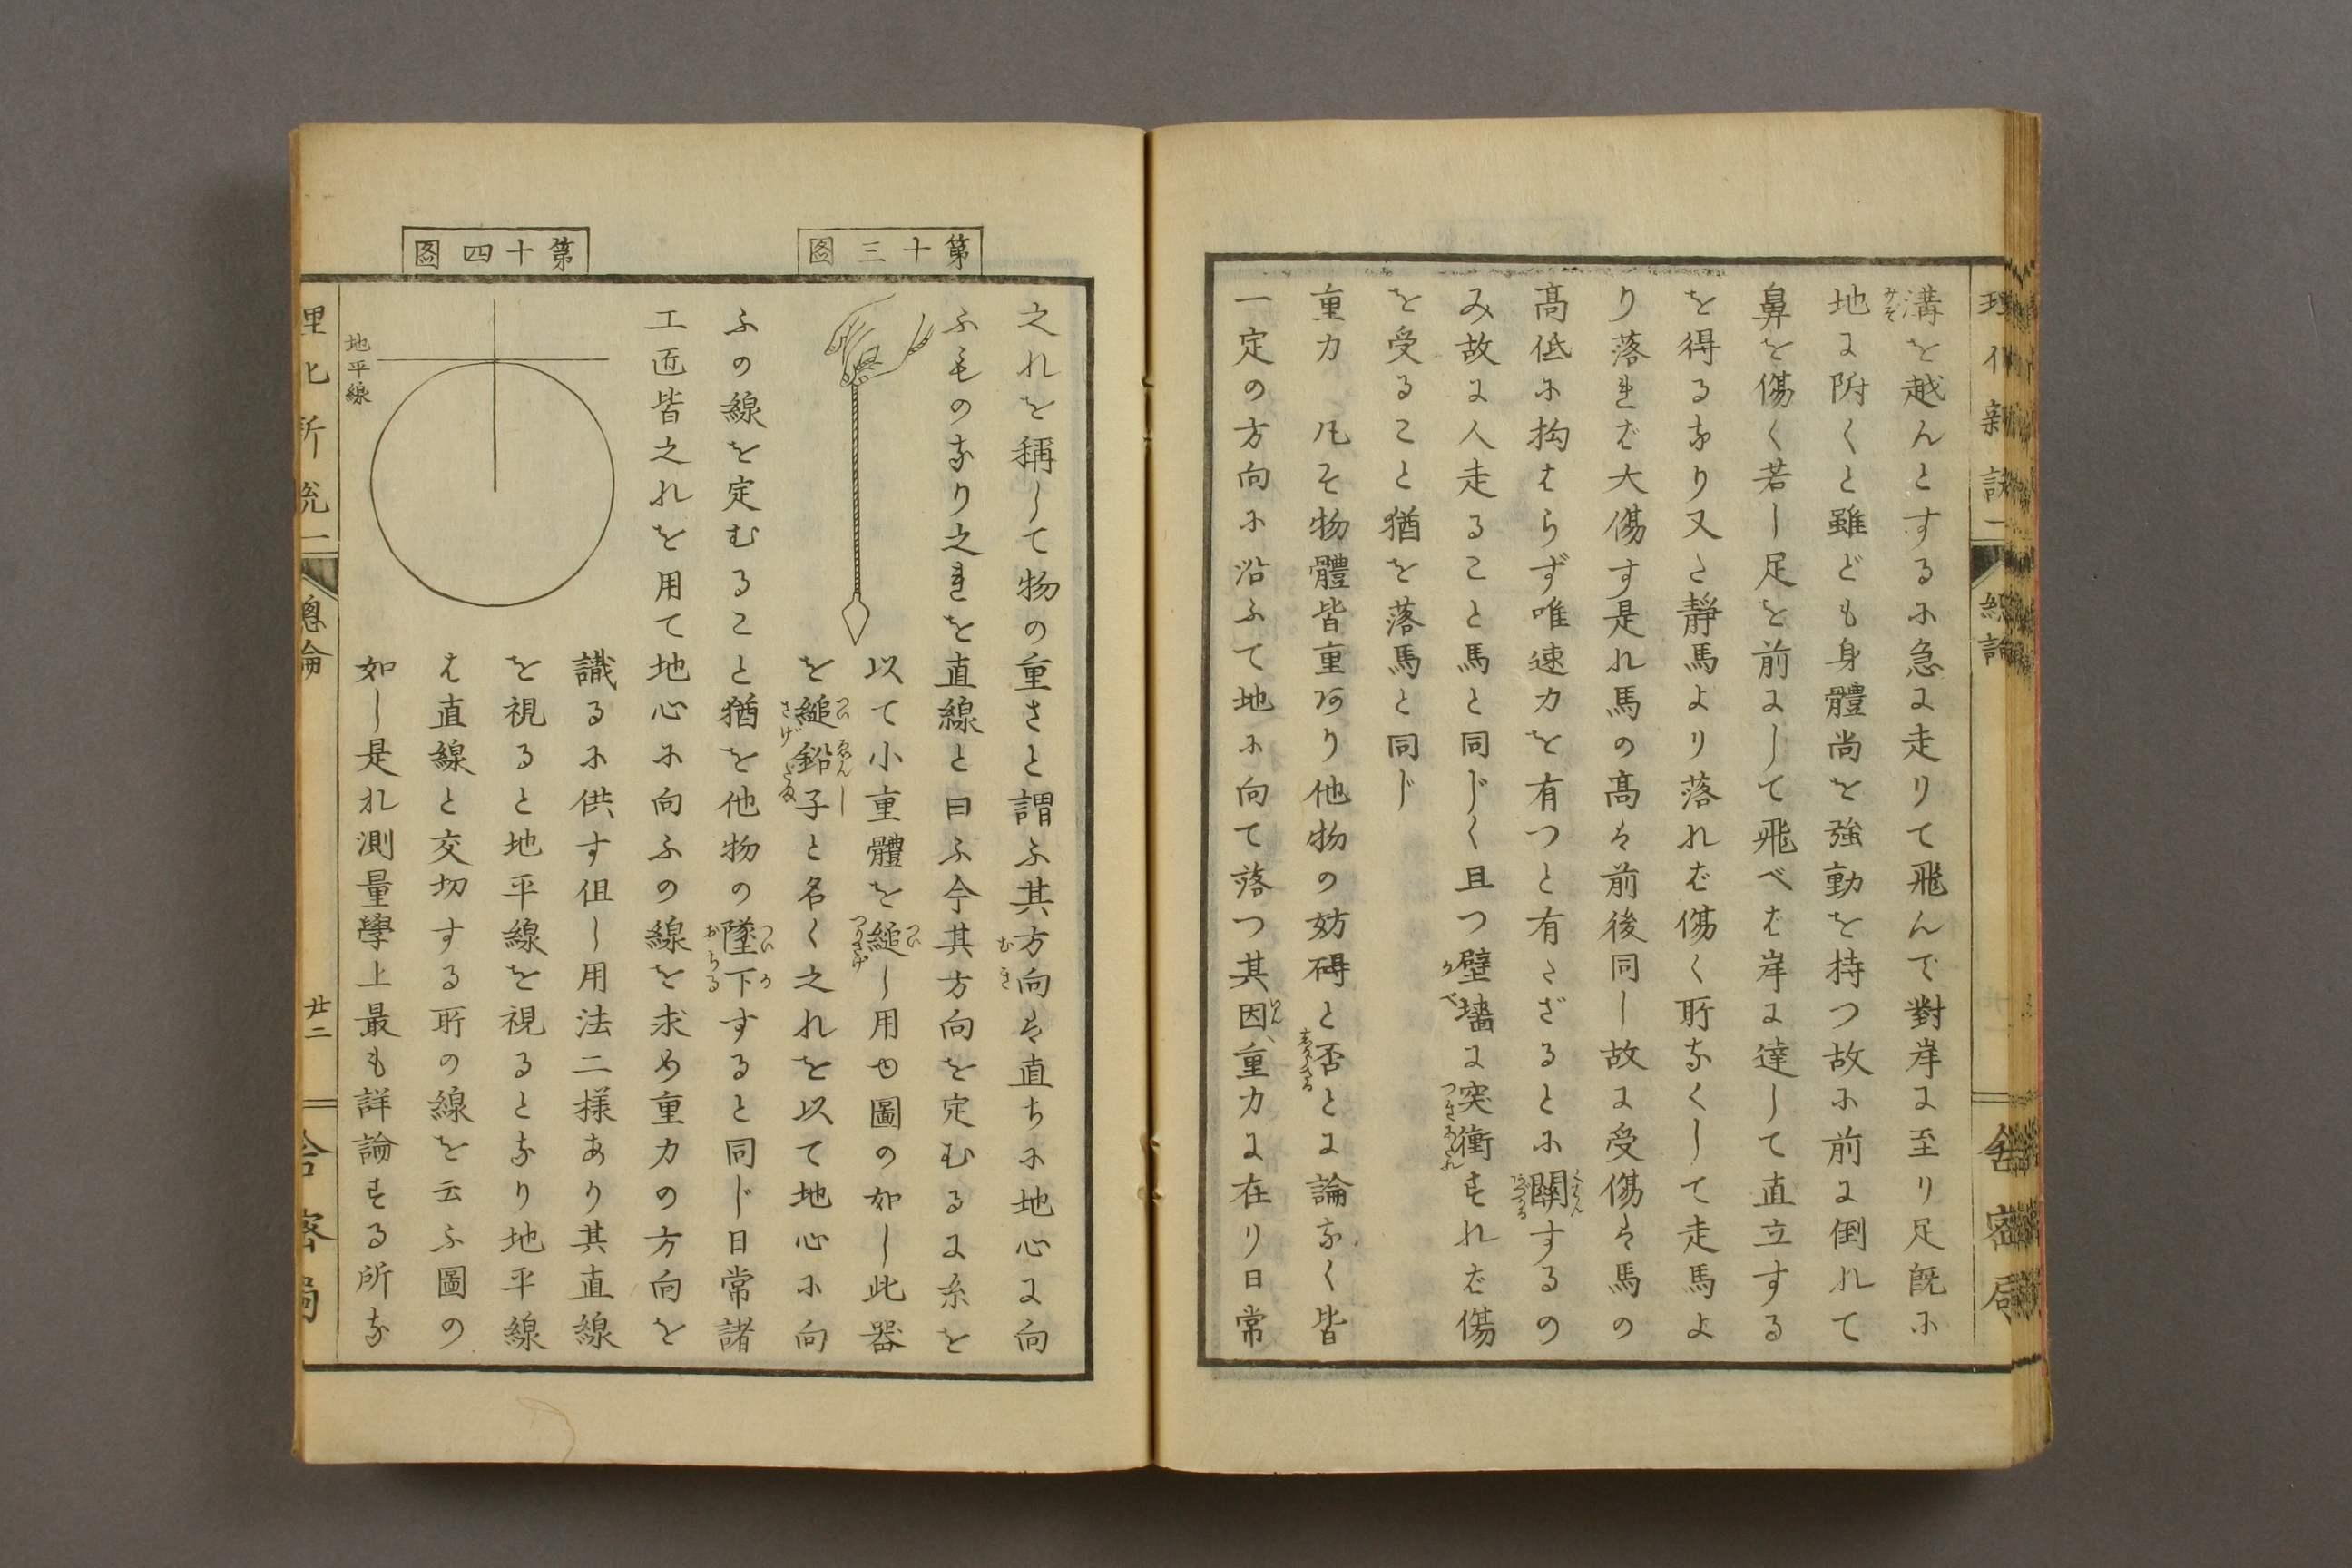 溝を越んとするに急に走りて飛んで對岸に至り足既に
みぞ
地に附くと雖ども身體尚を強動を持つ故に前に倒れて
鼻を傷く若し足を前にして飛べば岸に達して直立する
を得るなり又た靜馬より落れば傷く所なくして走馬よ
り落れば大傷す是れ馬の高は前後同し故に受傷は馬の
高低に拘はらず唯速力を有つと有たざるとに關するの
くわん
み故に人走ること馬と同じく且つ壁墻に突衝すれば傷
かべ
を受ること猶を落馬と同じ
重力 凡そ物體皆重あり他物の妨碍と否とに論なく皆
一定の方向に沿ふて地に向て落つ其因、重力に在り日常
いん
總論
舎密局
第十三圖
第十四圖
之れを稱して物の重さと謂ふ其方向は直ちに地心に向
むき
ふものなり之れを直線と曰ふ今其方向を定むるに糸を
以て小重體を縋し用ゆ圖の如し此器
つい
つりさげ
を縋鉛子と名く之れを以て地心に向
つゐゑんし
さげだま
ふの線を定むること猶を他物の墜下すると同じ日常諸
ついか
おちる
工匠皆之れを用て地心に向ふの線を求め重力の方向を
識るに供す但し用法二様あり其直線
を視ると地平線を視るとなり地平線
は直線と交切する所の線を云ふ圖の
如し是れ測量學上最も詳論する所な
地平線
總論
廿二
舎密局